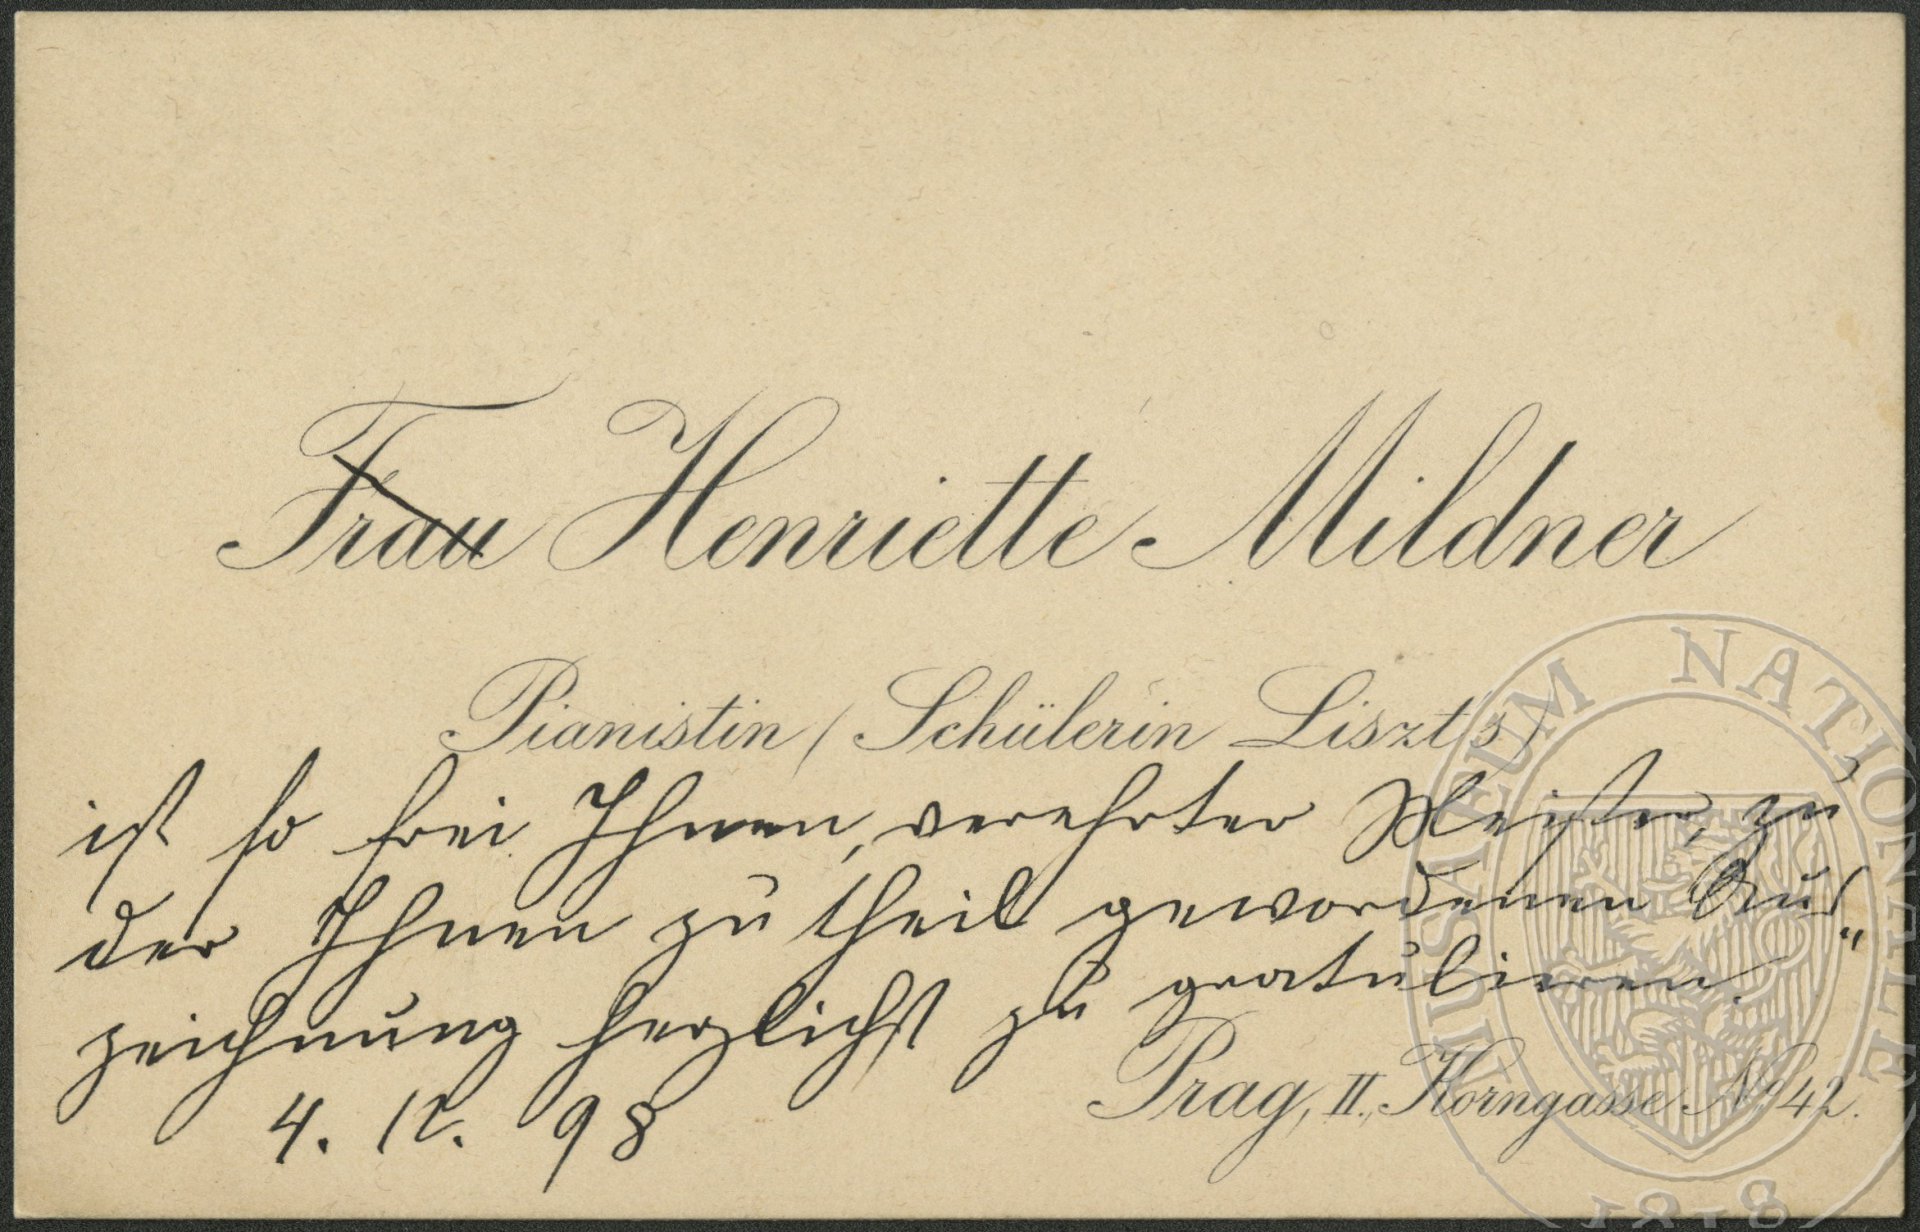 Frau Henriette Mildner
Pianistin (Schülerin Liszt's)
ist so frei Ihnen, verehrter Meister, zu
der Ihnen zu theil gewordenen Aus„
zeichnung herzlichst zu gratulieren.
Prag, II., Korngasse No 42.
4. 12. 98
MUSAEUM NATIONALE
1818